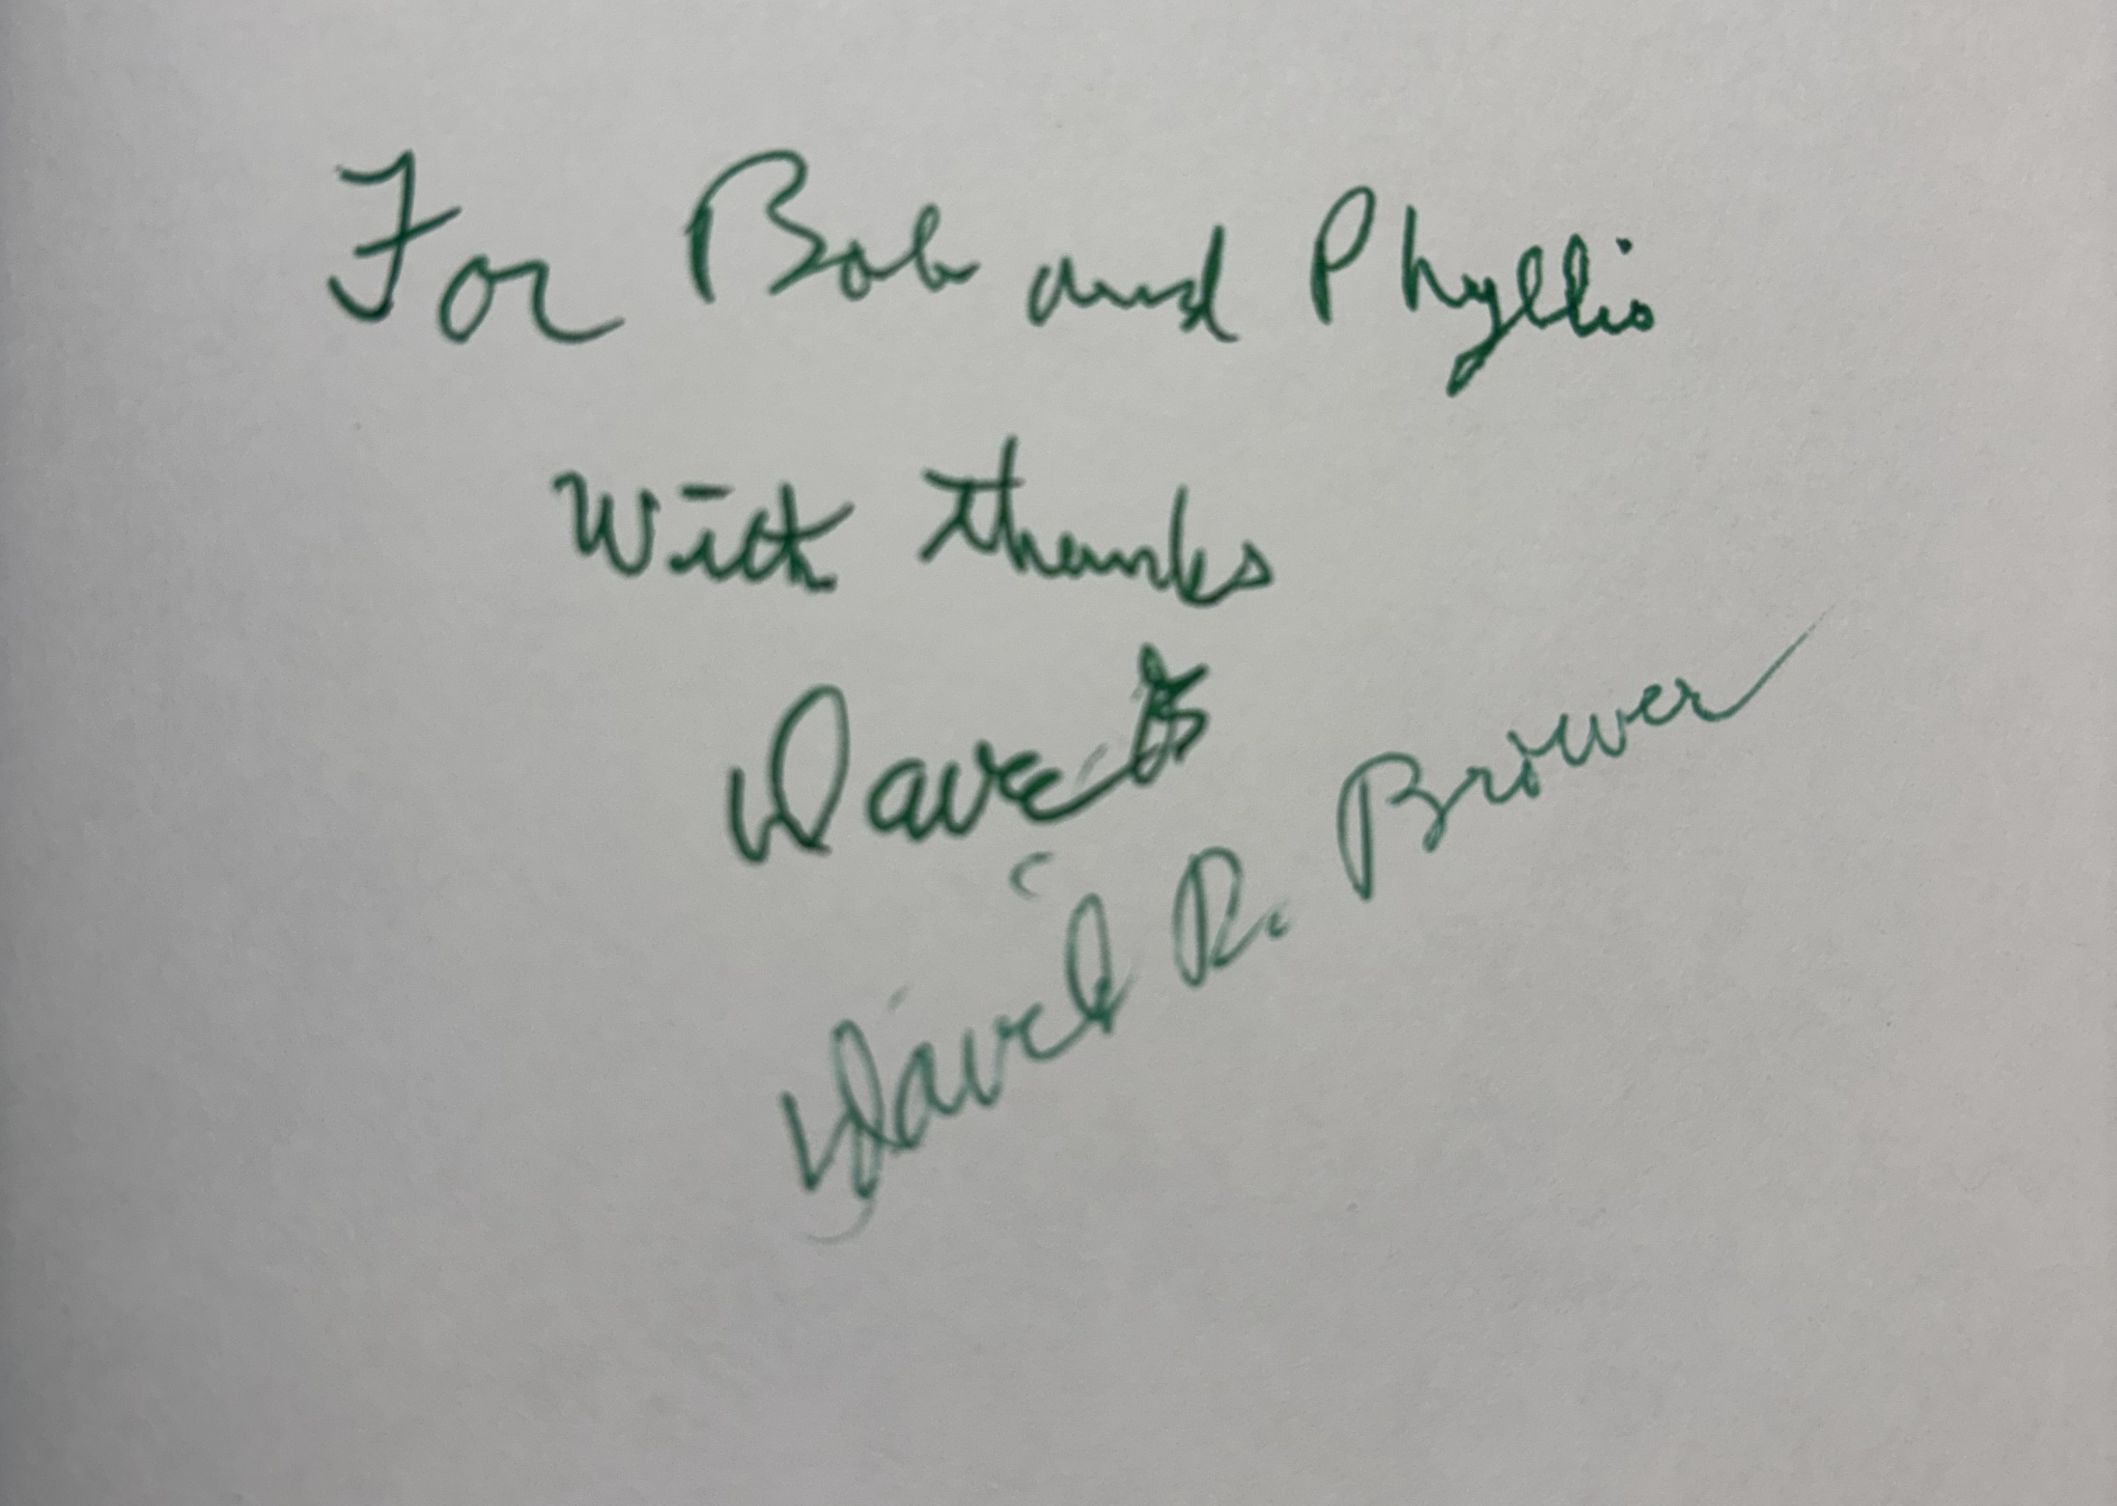 For Bob and Phyllis
With thanks
Dave
David R. Brower